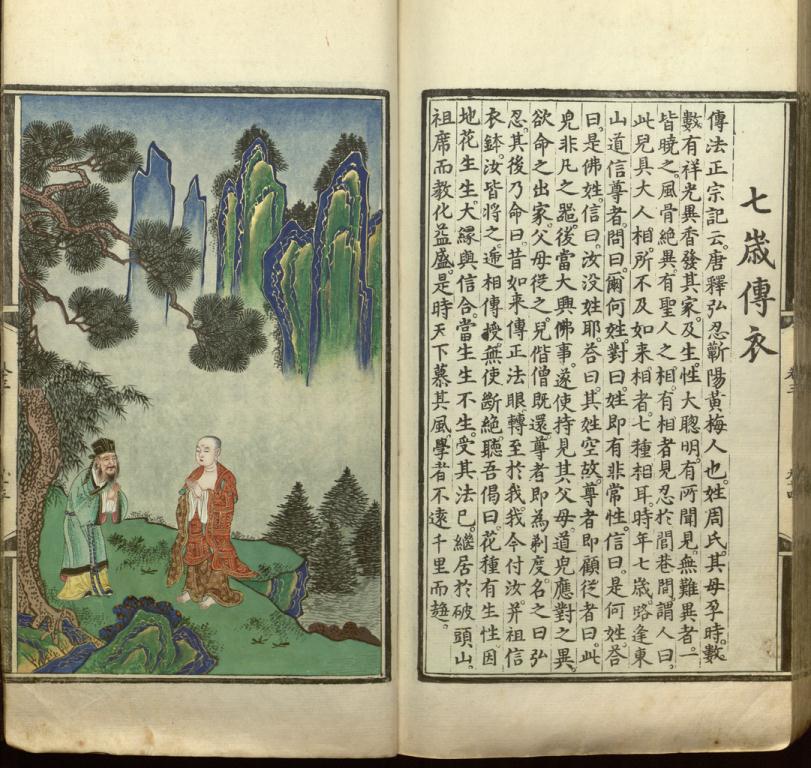 七歲傳衣
傳法正宗記云。唐釋弘忍。蘄陽黃梅人也。姓周氏。其母孕時。數
數有祥光異香發其家。及生。性大聰明。有所聞見。無難異者。一
皆曉之。風骨絕異。有聖人之相。有相者見忍於閭巷間。謂人曰。
此兒具大人相。所不及如來相者。七種相耳。時年七歲。路逢東
山道信尊者。問曰。爾何姓。對曰。姓即有。非常性。信曰。是何姓。荅
曰。是佛姓。信曰。汝没姓耶。荅曰。其姓空故。尊者即顧從者曰。此
兒非凡之器。後當大興佛事。遂使持見其父母。道兒應對之異。
欲命之出家。父母從之。兒偕僧既還。尊者即為剃度。名之曰弘
忍。其後乃命曰。昔如来傳正法眼。轉至於我。我今付汝。并祖信
衣鉢。汝皆將之。遞相傳授。無使斷絕。聽吾偈曰。花種有生性。因
地花生生。大緣與信合。當生生不生。受其法已。繼居於破頭山。
祖席而教化益盛。是時天下慕其風。學者不遠千里而趍。